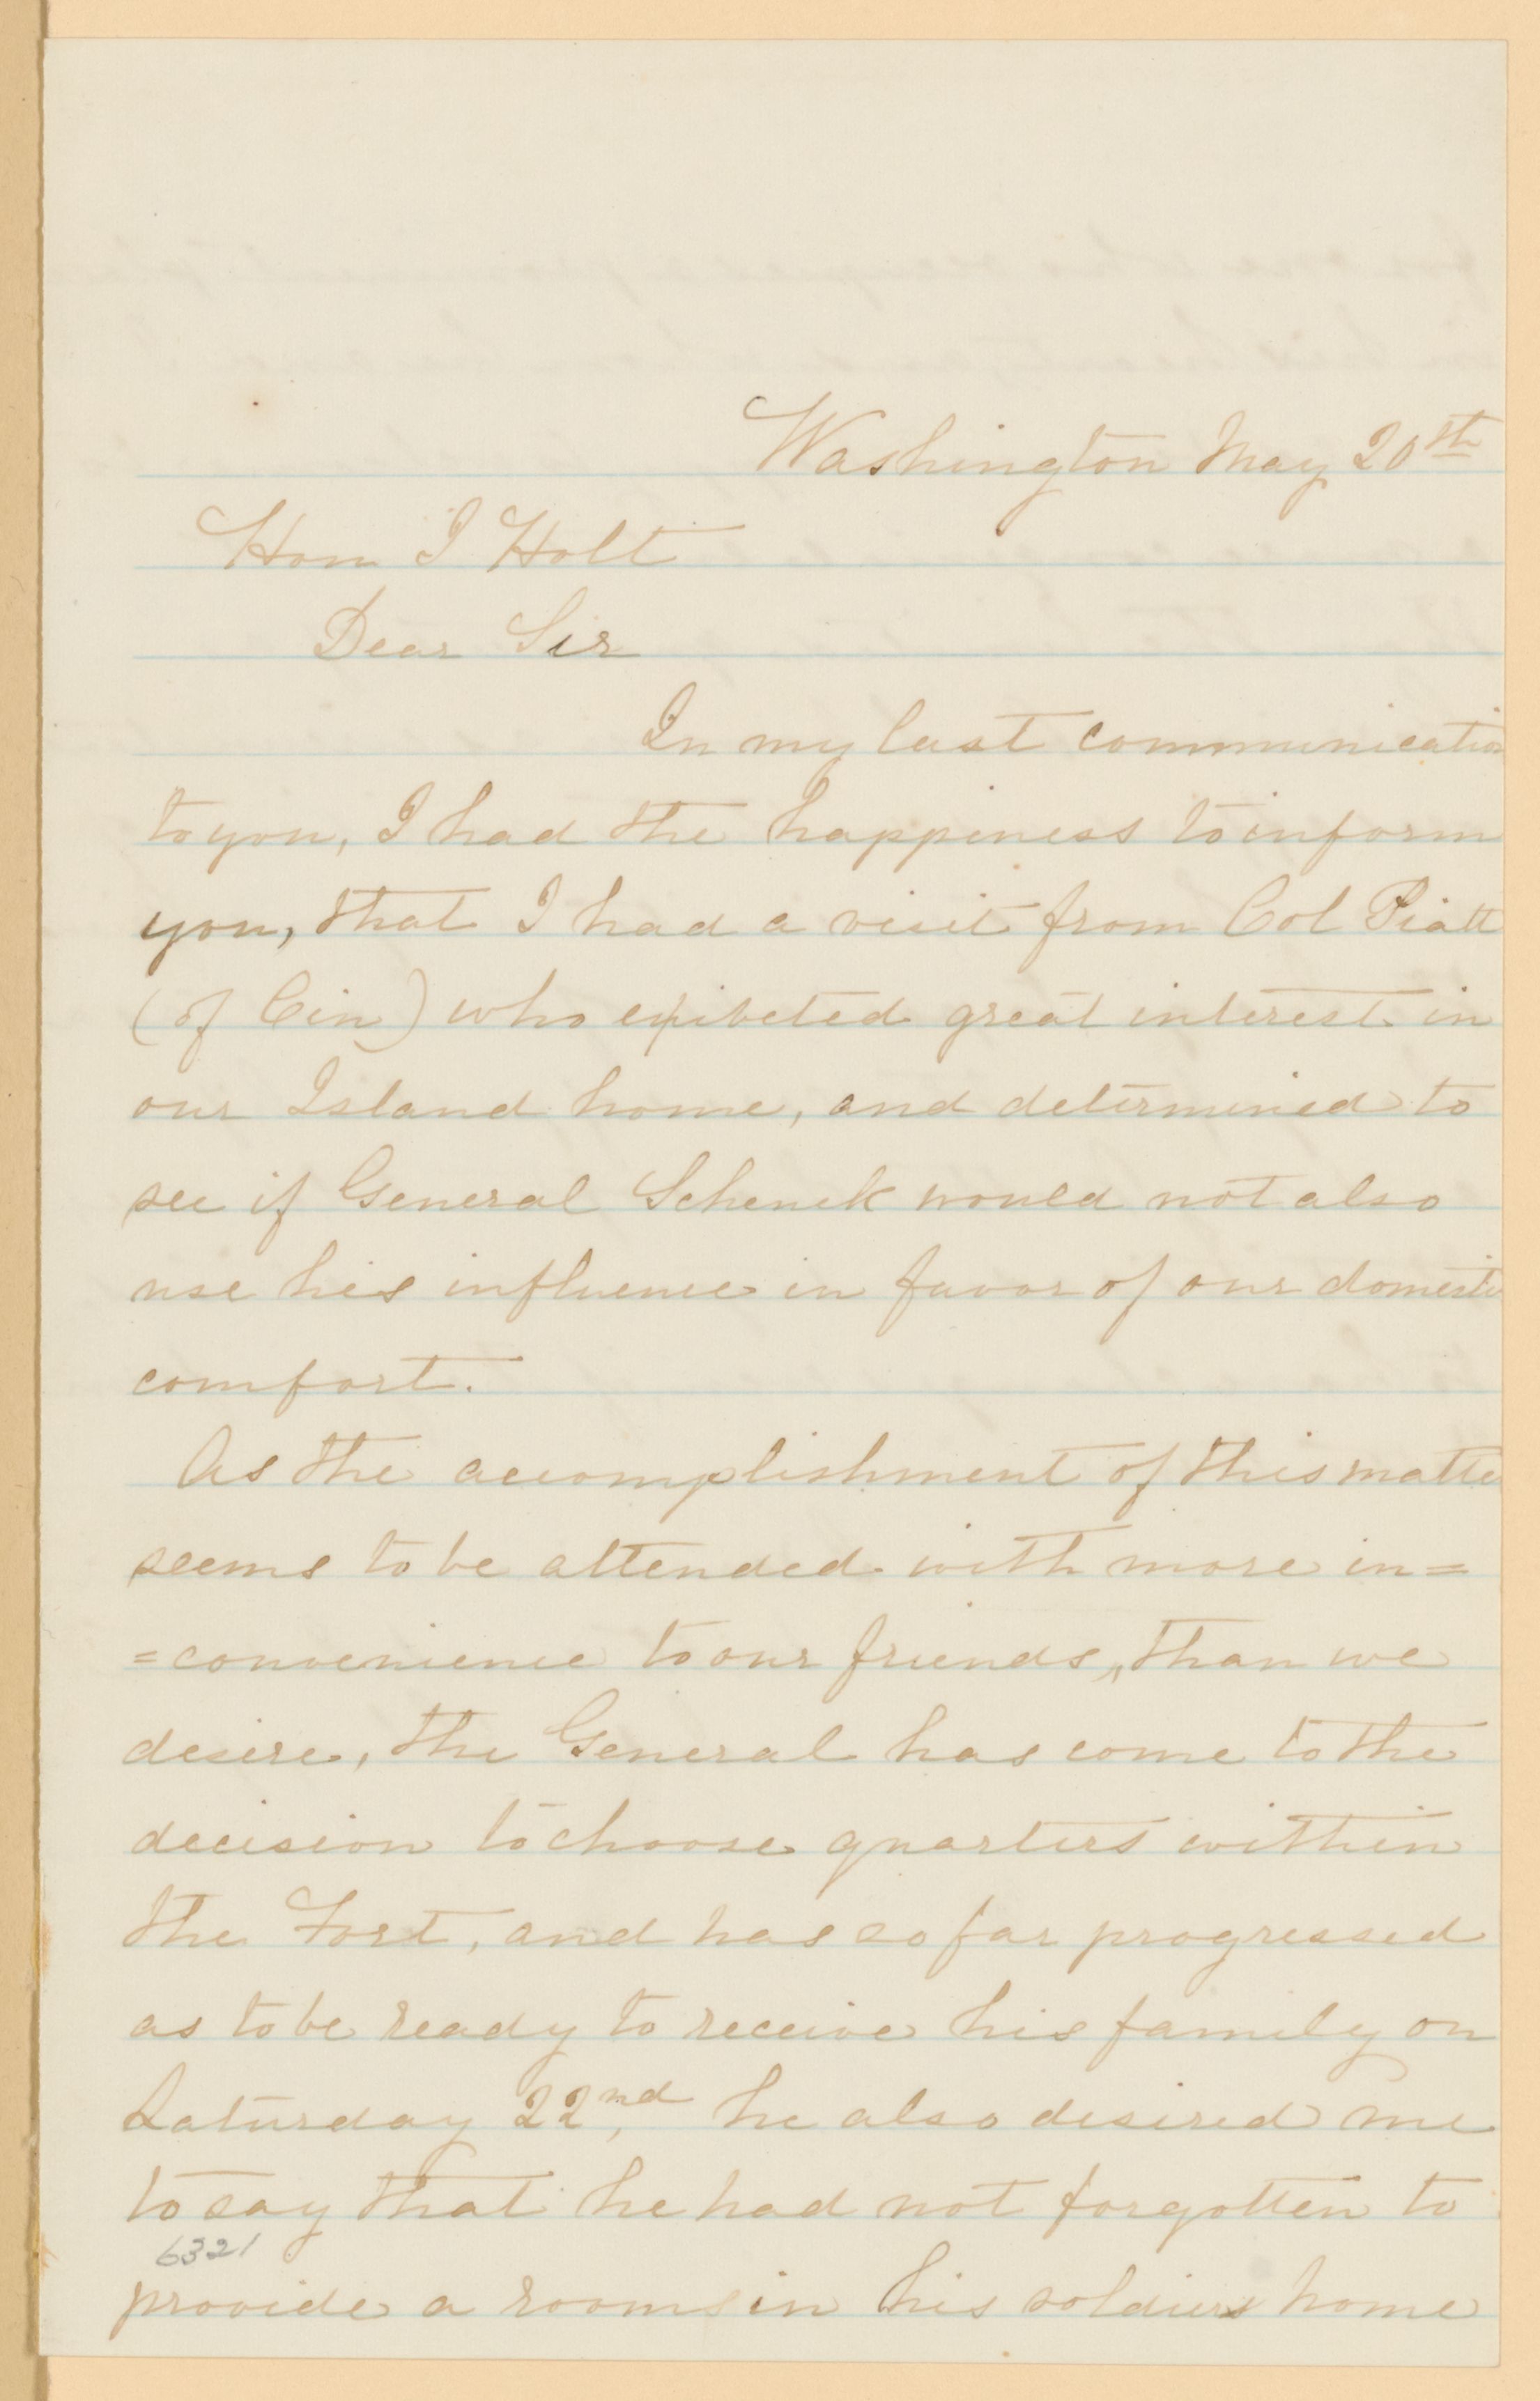 Washington May 20th
Hon J Holt
Dear Sir
In my last communication
to you, I had the happiness to inform
you, that I had a visit from Col Piatt
(of Cin) who exibeted great interest in
our Island home, and determined to
see if General Schenck would not also
use his influence in favor of our domestic
comfort.
As the accomplishment of this matter
seems to be attended with more in=
=convenience to our friends, than we
desire, the General has come to the
decision to choose quarters within
the Fort, and has so far progressed
as to be ready to receive his family on
Saturday 22nd, he also desired me
to say that he had not forgotten to
6321
provide a room in his soldiers home